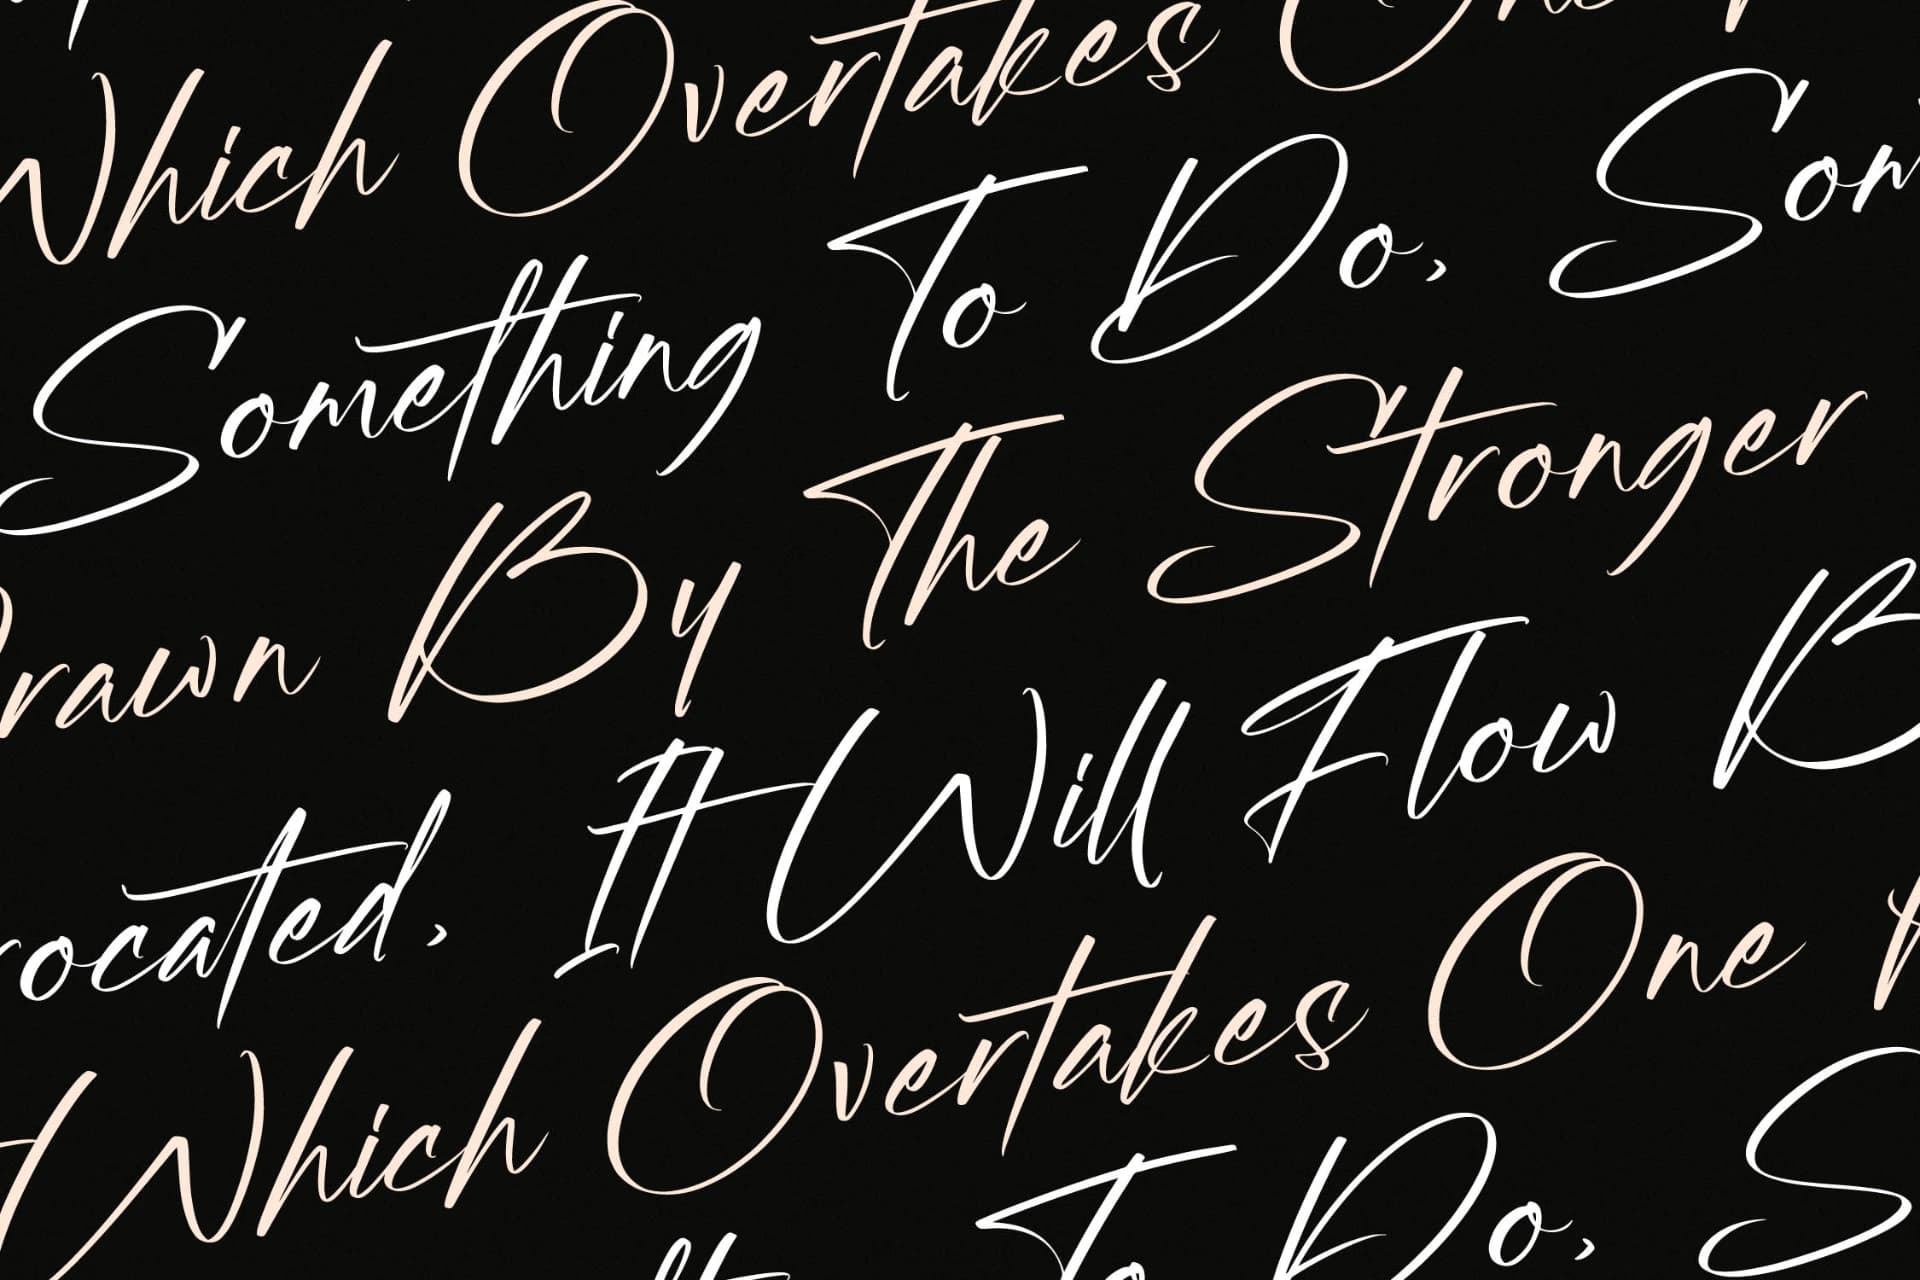 Which Overtakes One
Something To Do,
Drawn By The Stronger
It Will Flow
Which Overtakes One
To Do,